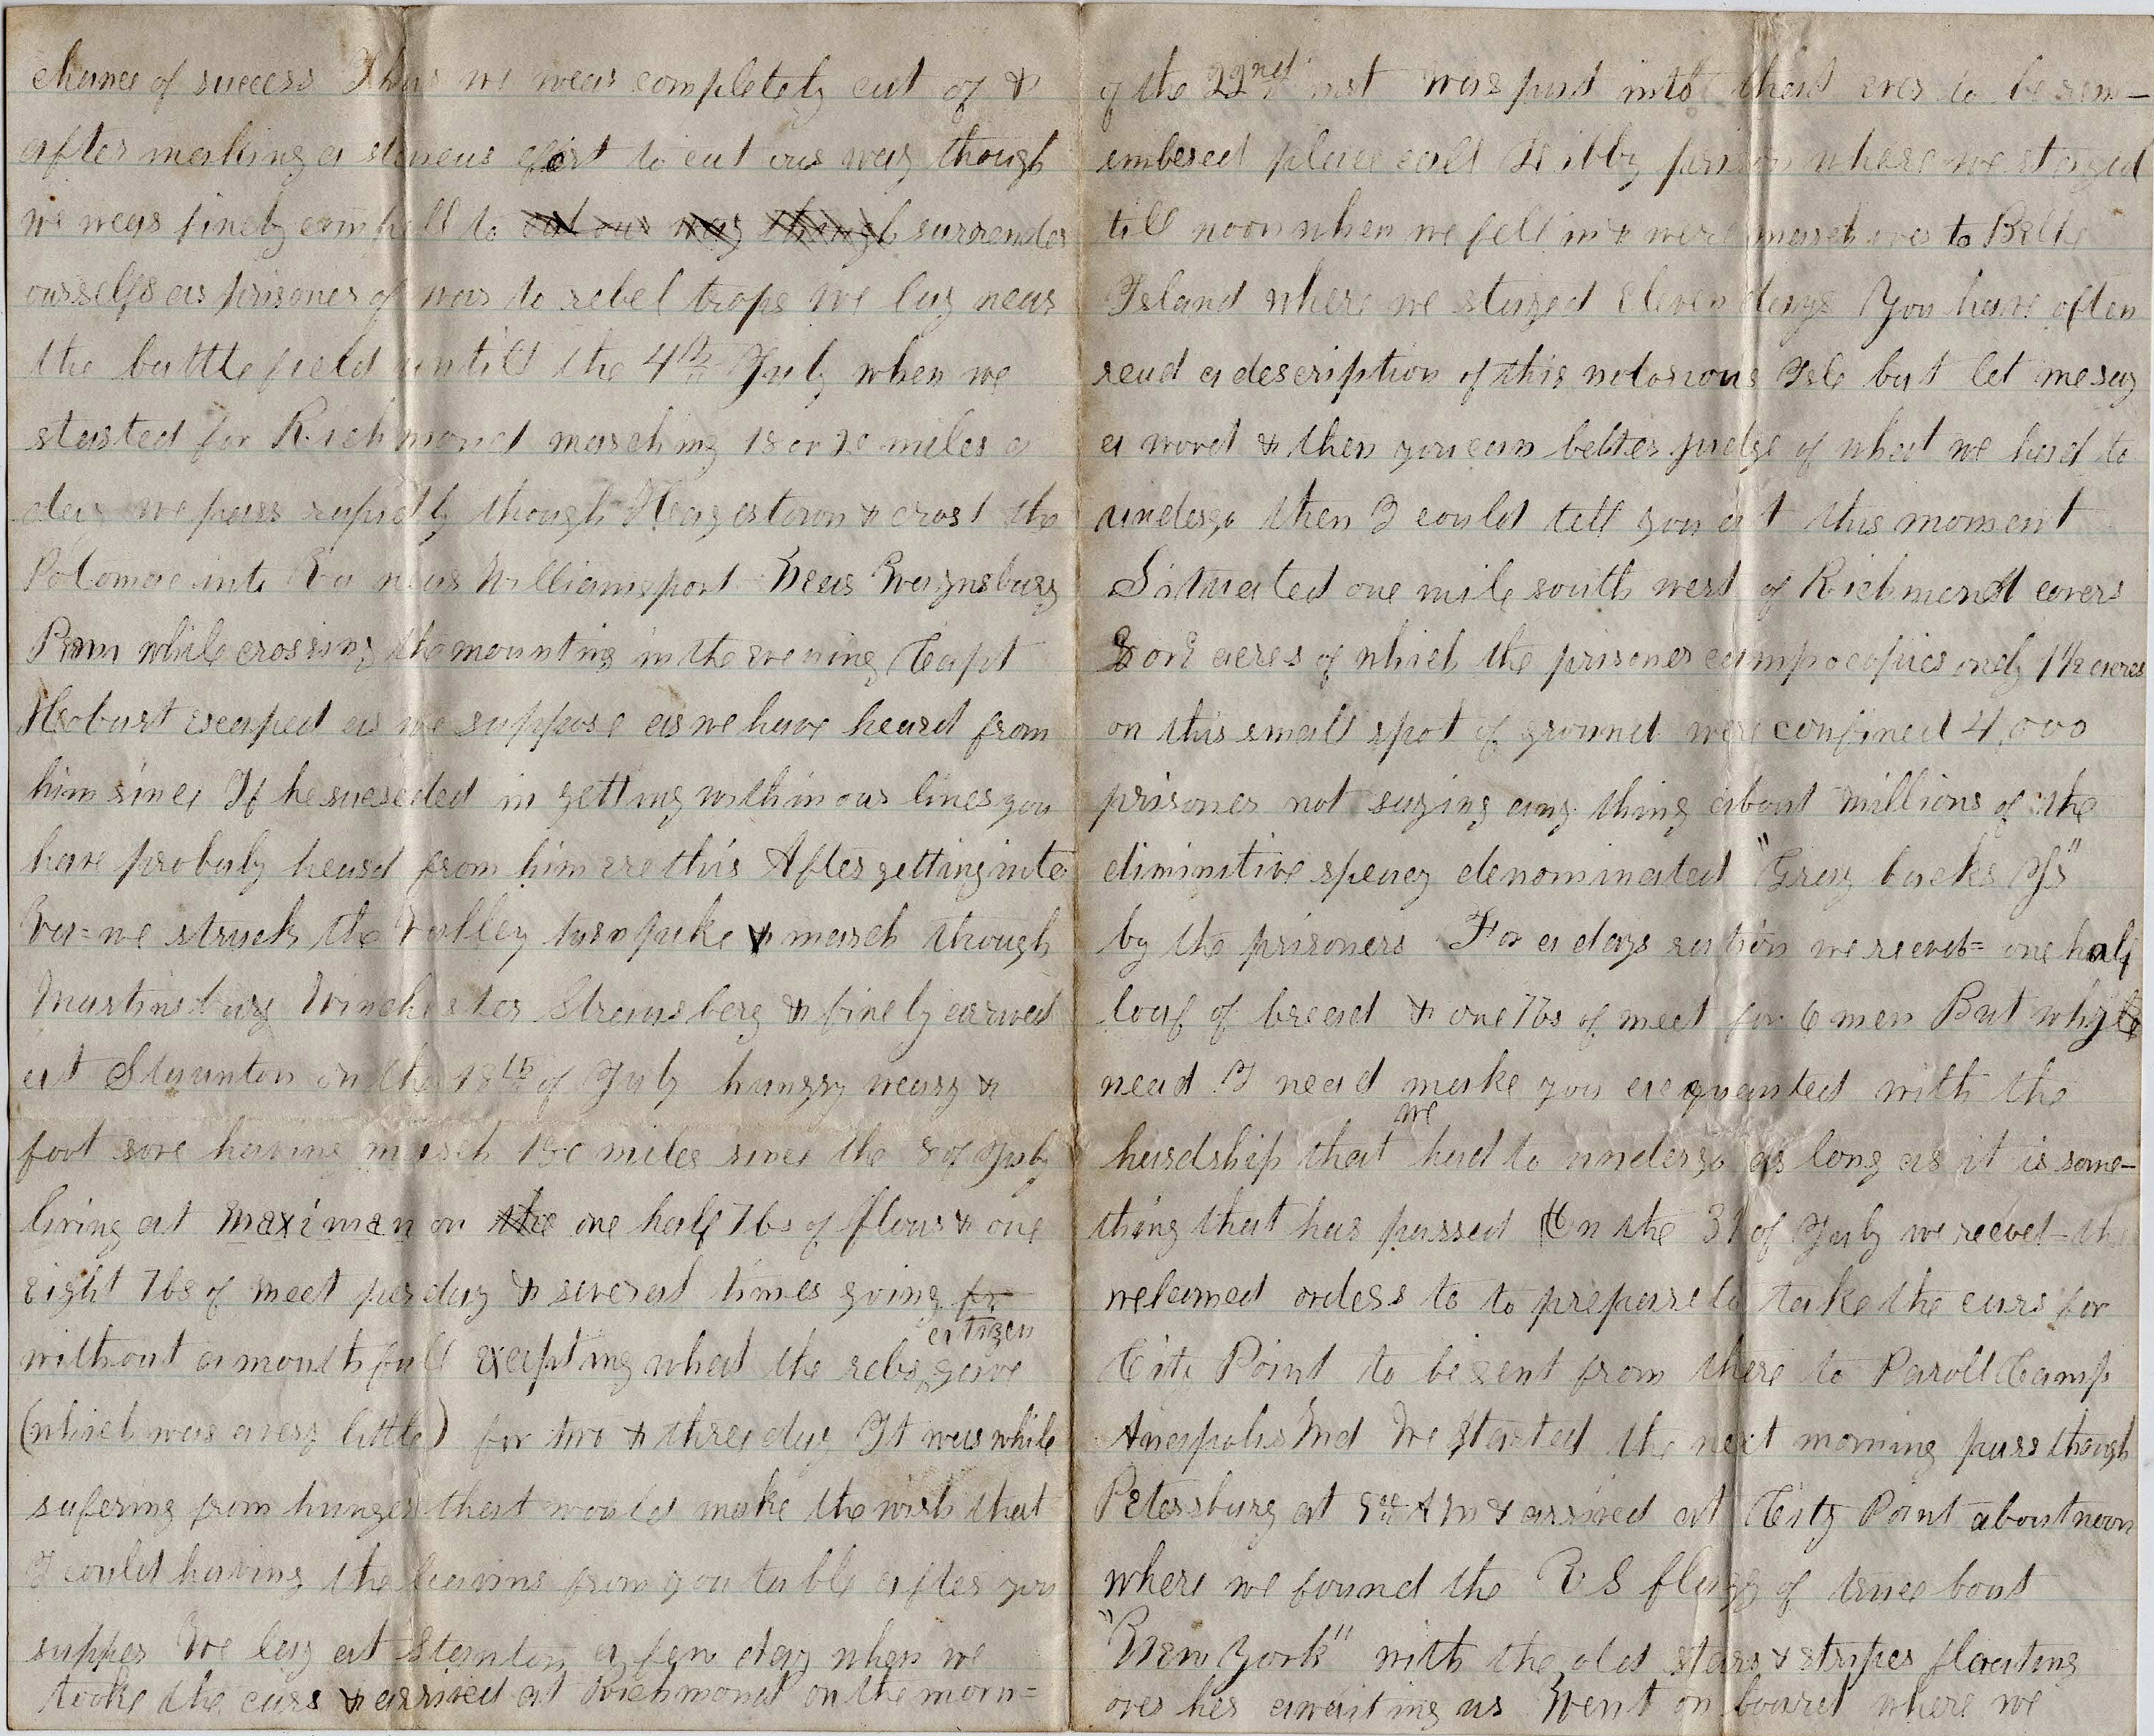 chance of success Thus we wear completely cut of &
after making a stenus efort to cut our way though
we wear finely compell to cut our way though surrender
ourselfs as prisoner of war to rebel trops we lay near
the battle field untill the 4th July when we
started for Richmond marching 18 or 20 miles a
day we pass rapidly though Hagestown & crost the
Potomac into Va near Williamsport Near Waynsburg
Penn while crossing the mounting in the evening Capt
Hobart escaped as we suppose as we have heard from
him since If he sueseded in getting within our lines you
have probaly heard from him ere this After getting into
Va = we struck the Valley turnpike & march through
Martinsburg Winchester Strausberg & finely arrived
at Staunton on the 18th of July hungry weary &
foot sore having march 180 miles since the 8 of July
living at maximan on the one half lbs of flour & one
eight lbs of meet per day & several times going for
without a mouth full excepting what the rebs citizen gave
(which was a very little) for two & three day It was while
sufering from hunger that would make the wish that
I could having the leavins from you table after you
supper We lay at Stanton a few day when we
tooke the cars & arrived at Richmond on the morn=
of the 22nd inst was put into that ever to be rem-
embered place cald Libby prison where we stayed
till noon when we fell in & were march over to Belle
Island where we stayed eleven days You have often
read a description of this notorious Isle but let me say
a word & then you can better judge of what we had to
undergo then I could tell you at this moment
Situated one mile south west of Richmond covers
8 or 9 acres of which the prisoner camp ocopies only 1 1/2 acres
on this small spot of ground were confined 4,000
prisoner not saying any thing about millions of the
diminitive specey denominated "Gray backs Js"
by the prisoners For a days ration we recevd= one half
loaf of bread & one lbs of meet for 6 men But why
nead I nead make you acquanted with the
hardship that we had to undergo as long as it is some-
thing that has passed On the 31 of July we recevd the
welcomed orders to to prepare to take the cars for
City Point to be sent from there to Paroll Camp
Anapolis Md We started the next morning pass though
Petersburg at AM & arrived at City Point about noon
where we found the U S flagg of truce boat
"New York" with the old stars & stripes floating
over her awaiting us Went on board where we